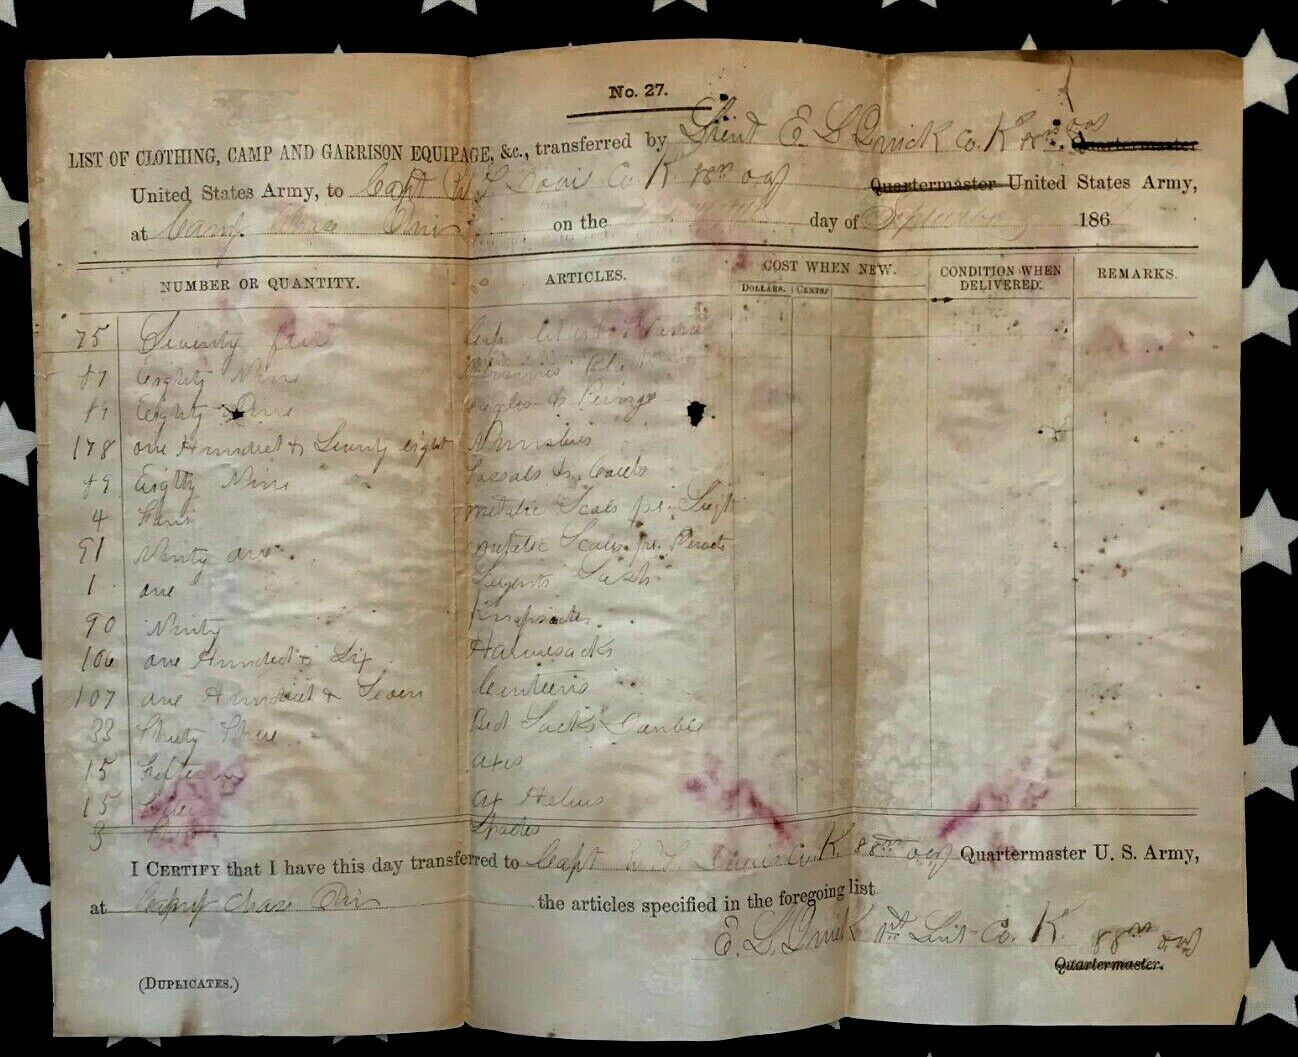 No. 27.
LIST OF CLOTHING, CAMP AND GARRISON EQUIPAGE, &c., transferred by Lieut E. L. Quick Co. K Quartermaster
United States Army, to Capt W. Davis Co K 88th o.v.i Quartermaster United States Army,
at Camp Chase Ohio on the day of September 186
NUMBER OR QUANTITY. ARTICLES. COST WHEN NEW. CONDITION WHEN DELIVERED. REMARKS.
DOLLARS. CENTS.
75 Seventy five
89 Eighty Nine
89 Eighty Nine Eagles & Rings
178 one Hundred & Seventy eight Numbers
89 Eighty Nine Tassals & Cords
4 Four metalic Scals pr. Sergt
91 Ninty one metalic Scals pr. Privats
1 one Sergents Sash
90 Ninty Knapsacks.
106 one Hundred & Six Haversacks
107 one Hundred & Seven Canteens
33 Thirty Three Bed Sacks Double
15 Fifteen Axes
15 Ax Helves
3 Spades
I CERTIFY that I have this day transferred to Capt W. Davis Co. K. 88th o.v.i Quartermaster U. S. Army,
at Camp Chase Ohio the articles specified in the foregoing list.
E. L. Quick Lieut Co. K. 88th o.v.i
Quartermaster.
(DUPLICATES.)